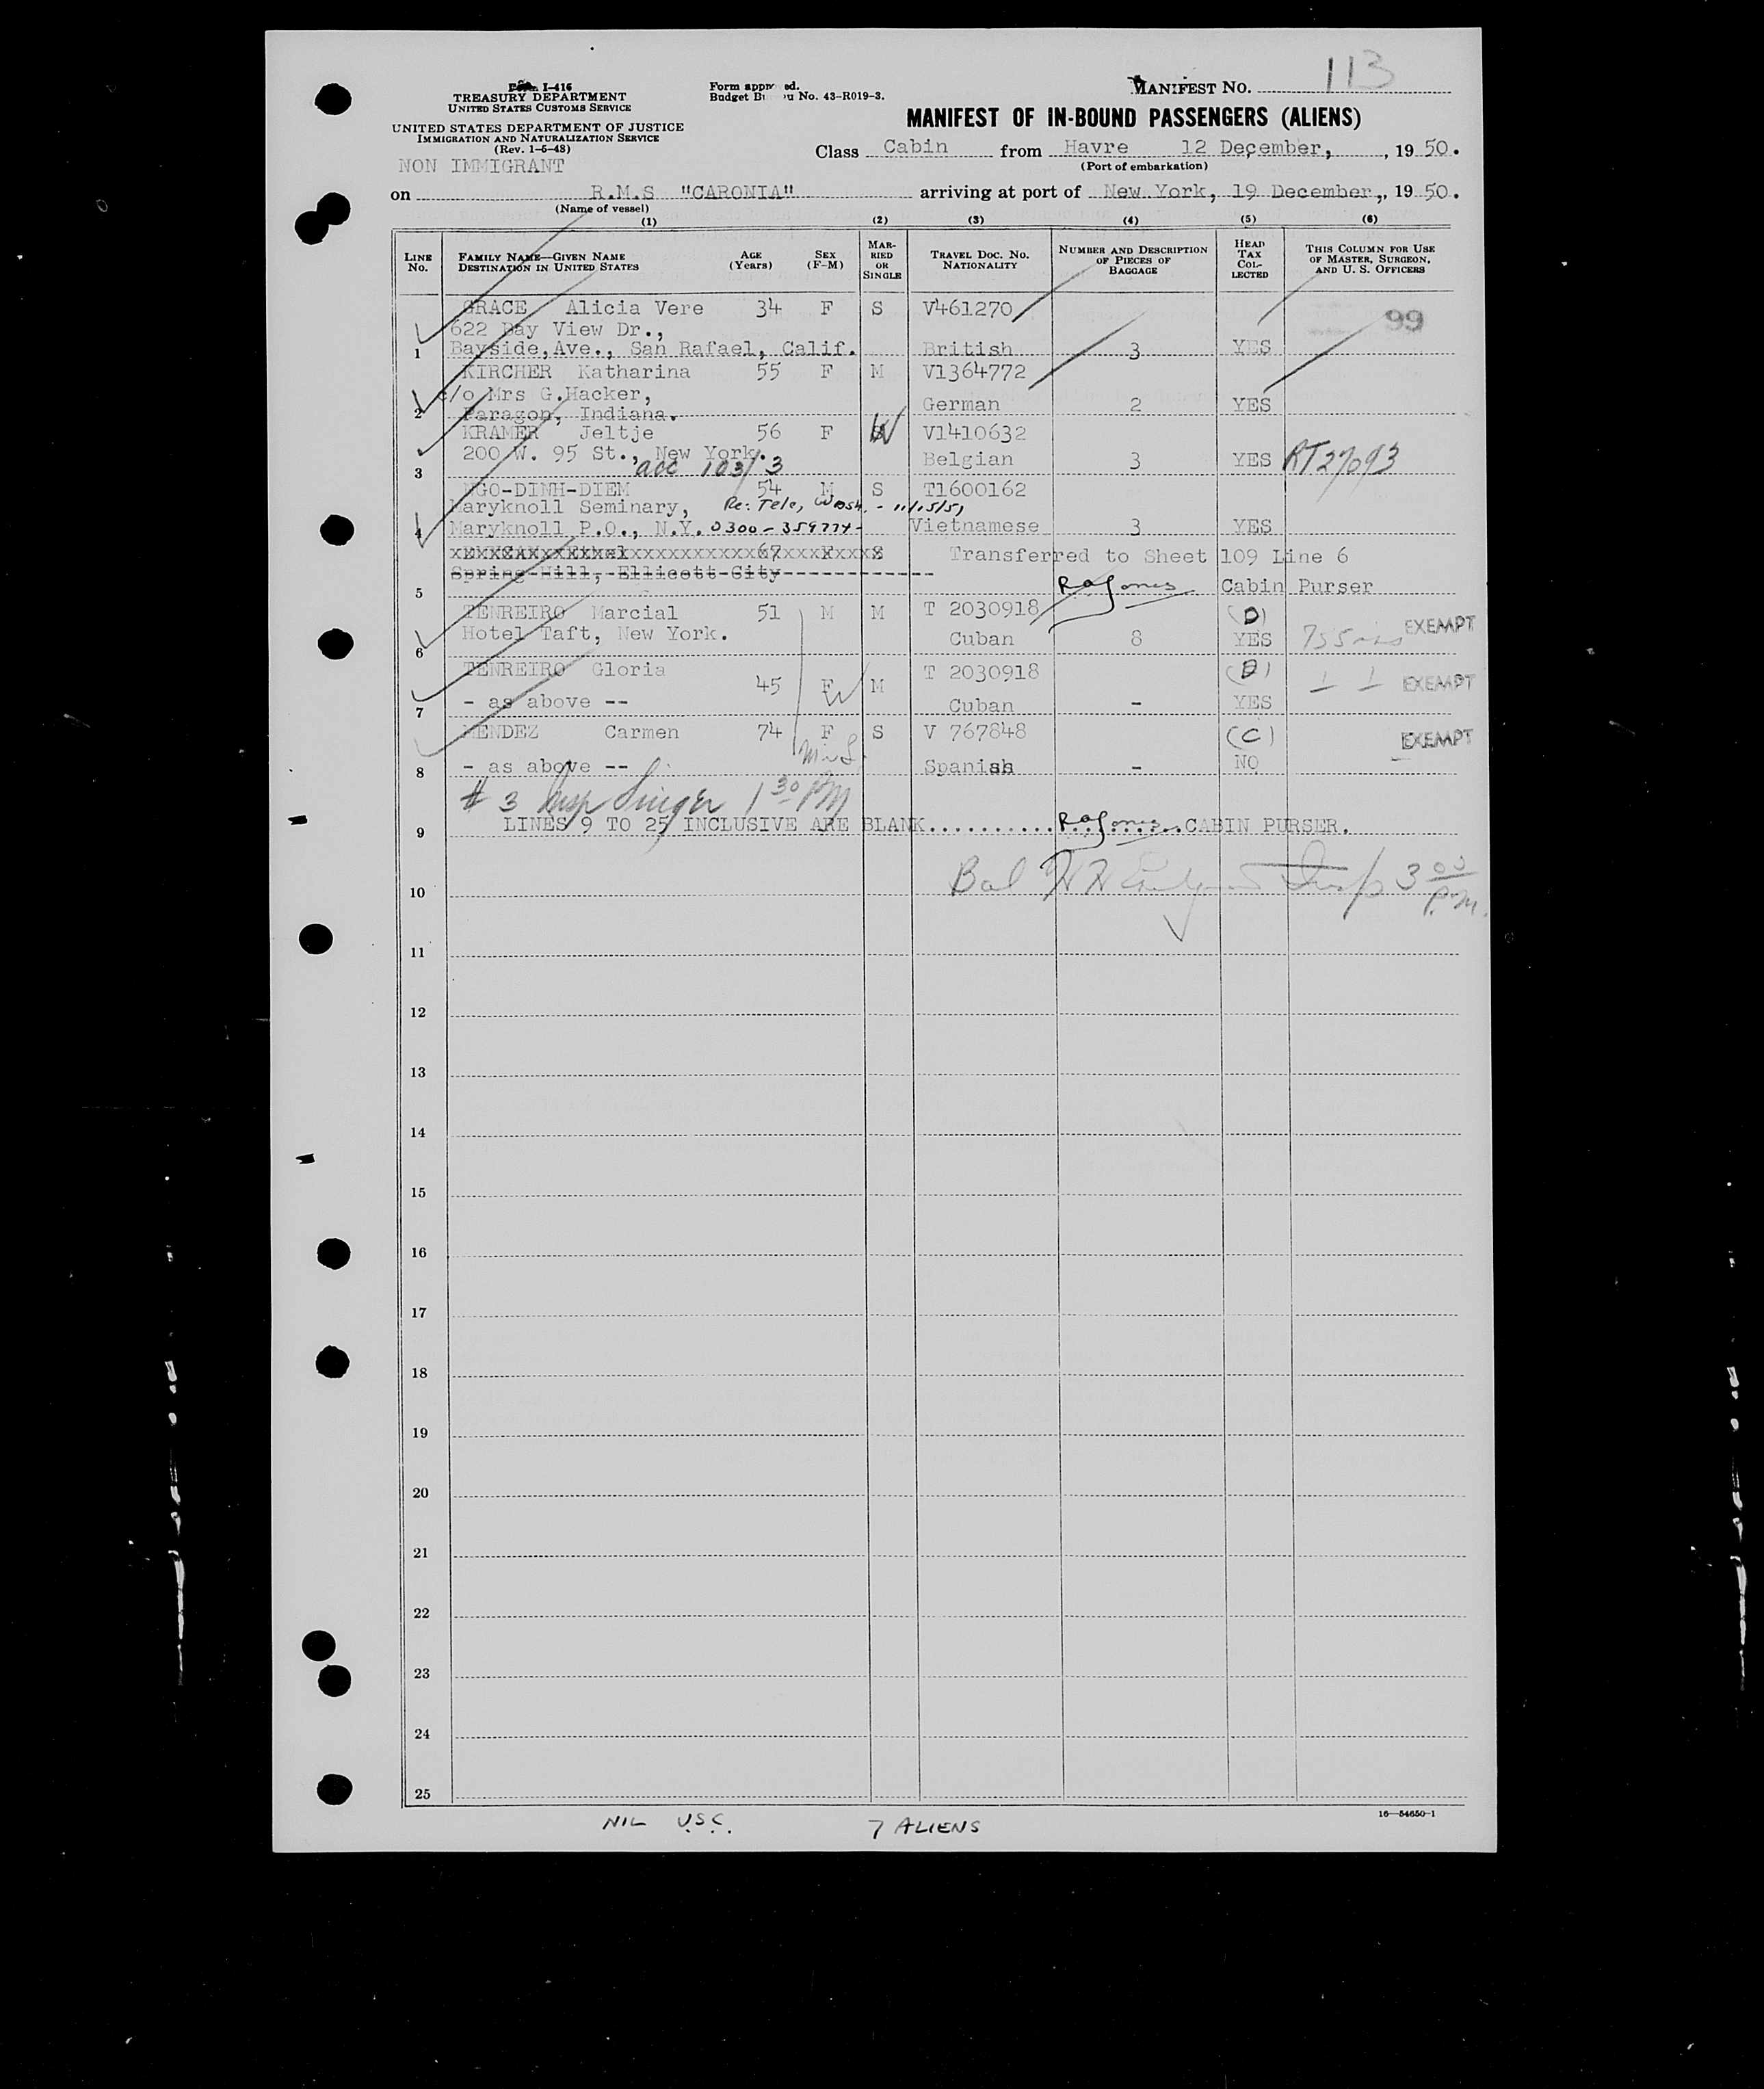 Form I-416
TREASURY DEPARTMENT
UNITED STATES CUSTOMS SERVICE
UNITED STATES DEPARTMENT OF JUSTICE
IMMIGRATION AND NATURALIZATION SERVICE
(Rev. 1-6-48)
NON IMMIGRANT
Form approved.
Budget Bureau No. 43-R019-3.
MANIFEST NO. 113
MANIFEST OF IN-BOUND PASSENGERS (ALIENS)
Class Cabin from Havre 12 December, , 19 50.
(Port of embarkation)
on R.M.S "CARONIA" arriving at port of New York, 19 December,, 19 50.
(Name of vessel)
(1) (2) (3) (4) (5) (6)
LINE No. FAMILY NAME—GIVEN NAME DESTINATION IN UNITED STATES AGE (Years) SEX (F-M) MARRIED OR SINGLE TRAVEL DOC. NO. NATIONALITY NUMBER AND DESCRIPTION OF PIECES OF BAGGAGE HEAD TAX COLLECTED THIS COLUMN FOR USE OF MASTER, SURGEON, AND U. S. OFFICERS
GRACE Alicia Vere 34 F S V461270 99
622 Bay View Dr.,
1 Bayside,Ave., San Rafael, Calif. British 3 YES
KIRCHER Katharina 55 F M V1364772
c/o Mrs G.Hacker, German 2 YES
2 Paragon, Indiana.
KRAMER Jeltje 56 F W V1410632
200 W. 95 St., New York. Belgian 3 YES RT27093
3 acc 103/3
NGO-DINH-DIEM 54 M S T1600162
Maryknoll Seminary, Re: Tele, Wash. - 11/15/51
4 Maryknoll P.O., N.Y. 0300-359774- Vietnamese 3 YES
Ethel 67 F S Transferred to Sheet 109 Line 6
Spring Hill, Ellicott City
5 RaJones Cabin Purser
TENREIRO Marcial 51 M M T 2030918 (D) EXEMPT
6 Hotel Taft, New York. Cuban 8 YES
TENREIRO Gloria 45 F M T 2030918 (D) EXEMPT
7 - as above -- Cuban - YES
MENDEZ Carmen 74 F S V 767848 (C) EXEMPT
8 - as above -- Spanish - NO
# 3 Insp Singer 1 30 PM
9 LINES 9 TO 25 INCLUSIVE ARE BLANK.......... RaJones ......CABIN PURSER.
10 Bal Insp 3 00 P.M.
11
12
13
14
15
16
17
18
19
20
21
22
23
24
25
16—54650-1
NIL U.S.C. 7 ALIENS